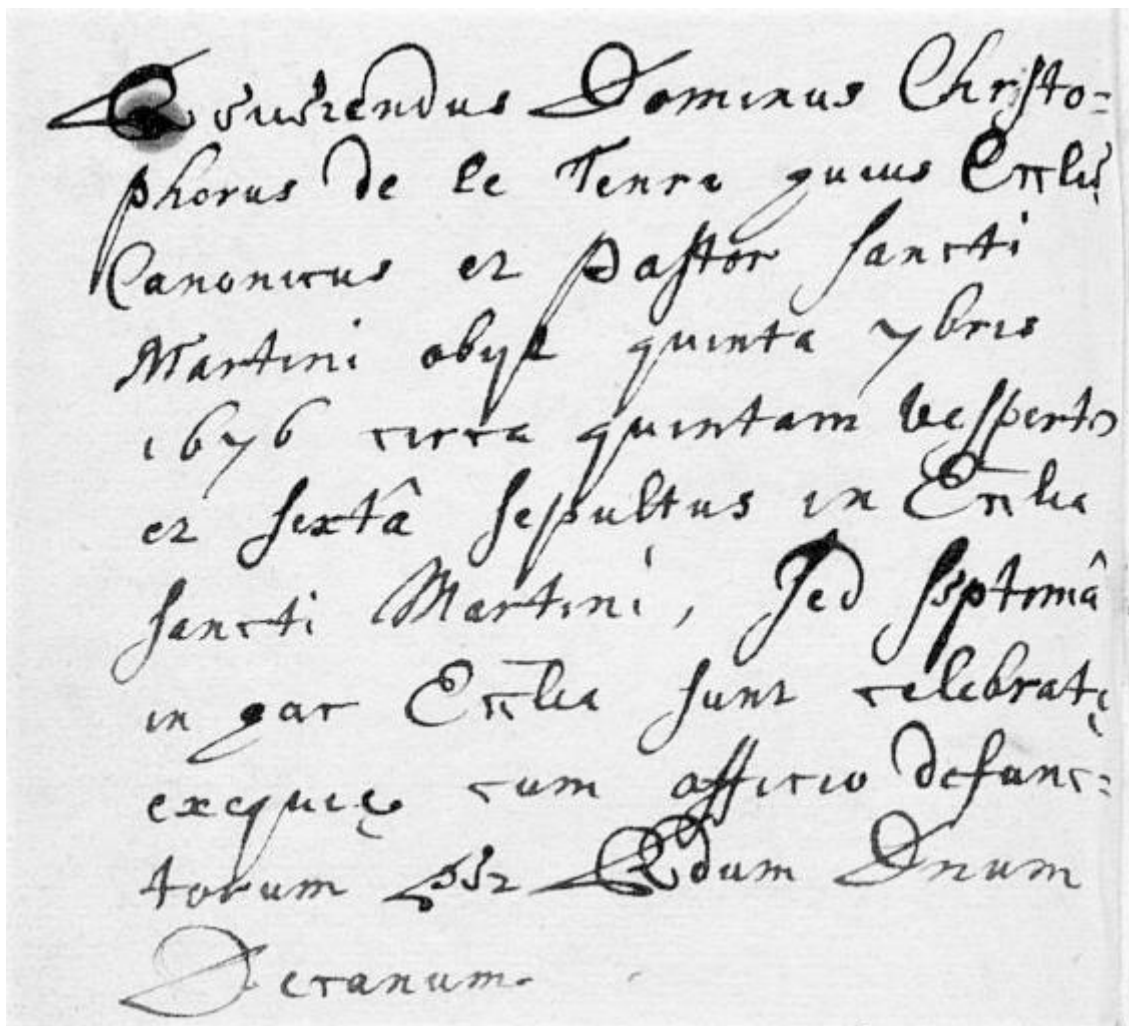 Reverendus Dominus Christo=
phorus de le Tenre huius Ecclię
Canonicus et Pastor sancti
Martini obyt quinta 7bris
1676 circa quintam vesperto
et sextâ sepultus in Ecclia
sancti Martini, sed septimâ
in hac Ecclia sunt celebratę
exequię cum officio defunc=
torum per Rdum Dnum
Decanum.